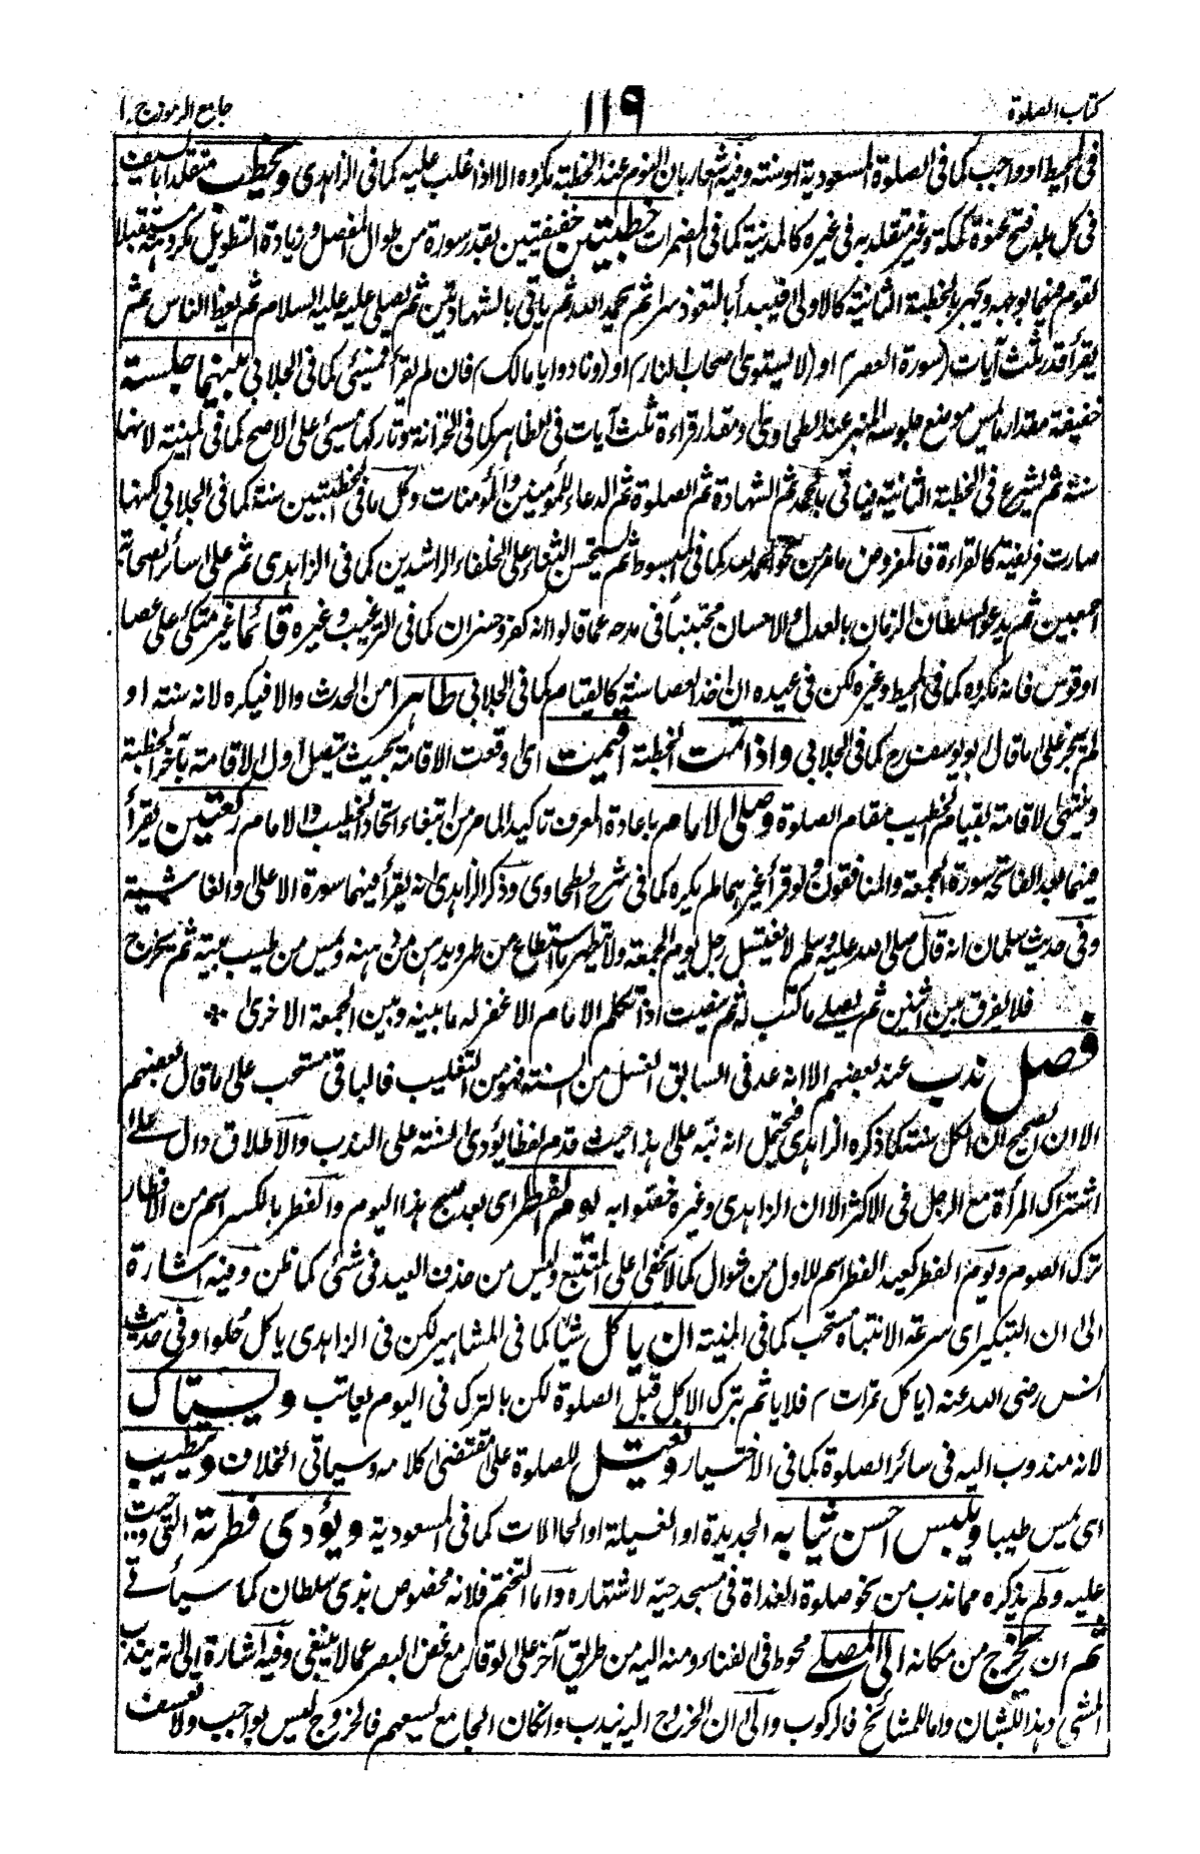 كتاب الصلوة
١١٩
جامع الرموز ج ١
فى المحيط او واجب كما فى الصلوة المسعودية او سنته وفيه اشعار بان النوم عند الخطبة مكروه الا اذا غلب عليه كما فى الزاهدى ويخطب متقلدا بالسيف
فى كل بلد فتح عنوة كمكة وغير متقلد به فى غيره كالمدينة كما فى المضمرات خطبتين خفيفتين بقدر سورة من طوال المفصل وزيادة التطويل مكروهة مستقبلا
لقوم فيهما بوجهه ويجهر بالخطبة الثانية كالاولى فيبدأ بالتعوذ سرا ثم يحمد الله ثم ياتى بالشهادتين ثم يصلى عليه عليه السلام ثم يعظ الناس ثم
يقرأ قدر ثلث آيات (سورة العصر) او (لا يستوى اصحاب النار) او (ونادوا يا مالك) فان لم يقرأ فمسيئ كما فى الجلابى بينهما جلسته
خفيفة مقدار ما يمس موضع جلوسه المنبر عند الطحاوى ومقدار قراءة ثلث آيات فى الظاهر كما فى الخزانة وتاركها مسيئ على الاصح كما فى المنية لانها
سنة ثم ليشرع فى الخطبة الثانية فياتى بالحمد ثم الشهادة ثم الصلوة ثم الدعاء للمؤمنين والمؤمنات وكل ما فى الخطبتين سنة كما فى الجلابى لكنها
صارت فريضة كالقراءة فالمفروض ما مر من نحو الحمد لله كما فى المبسوط ثم يستحسن الثناء على الخلفاء الراشدين كما فى الزاهدى ثم على سائر الصحابة
اجمعين ثم يدعو لسلطان الزمان بالعدل والاحسان مجتنبا فى مدحه عما قالوا انه كفر وخسران كما فى الترغيب وغيره قائما غير متكئ على عصا
او قوس فانه مكروه كما فى المحيط وغيره لكن فى عيده ان اخذ العصا سنة كالقيام كما فى الجلابى طاهرا من الحدث والا فيكره لانه سنة او
لم يجز على ما قال ابو يوسف رح كما فى الجلابى واذا تمت الخطبة اقيمت اى وقعت الاقامة بحيث يتصل اول الاقامة بآخر الخطبة
وينتهى الاقامة بقيام الخطيب مقام الصلوة وصلى الامام باعادة المعرف تاكيدا لما مر من ابتغاء اتحاد الخطيب والامام ركعتين يقرأ
فيهما بعد الفاتحة سورة الجمعة والمنافقون ولو قرأ غيرهما لم يكره كما فى شرح الطحاوى وذكر الزاهدى انه يقرأ فيهما سورة الاعلى والغاشية
وفى حديث سلمان انه قال صلى الله عليه وسلم لا يغتسل رجل يوم الجمعة ولا يتطهر ما استطاع من طهر ويدهن من دهنه ويمس من طيب بيته ثم يخرج
فلا يفرق بين اثنين ثم يصلى ما كتب له ثم ينصت اذا تكلم الامام الا غفر له ما بينه وبين الجمعة الاخرى
فصل ندب عند بعضهم الا انه عد فى السابق الغسل من السنة فهو من التغليب فالباقى مستحب على ما قال بعضهم
الا ان الصحيح ان الكل سنة كما ذكره الزاهدى فيحتمل انه نبه على هذا حيث قدم لفظا يؤدى السنة على الندب والاطلاق دال على
اشتراك المرأة مع الرجل فى الاكثر الا ان الزاهدى وغيره خصوا به يوم الفطر اى بعد صبح هذا اليوم والفطر بالكسر اسم من الافطار
ترك الصوم ويوم الفطر كعيد الفطر اسم للاول من شوال كما لا يخفى على المتتبع وليس من حذف العيد فى شئ كما ظن وفيه اشارة
الى ان التبكير اى سرعة الانتباه مستحب كما فى المنية ان ياكل شيئا كما فى المشاهير لكن فى الزاهدى ياكل حلوا وفى حديث
انس رضى الله عنه (ياكل تمرات) فلا ياثم بترك الاكل قبل الصلوة لكن بالترك فى اليوم يعاتب ويستاك
لانه مندوب اليه فى سائر الصلوة كما فى الاختيار ويغتسل للصلوة على مقتضى كلامه وسياتى الخلاف ويتطيب
اى يمس طيبا ويلبس احسن ثيابه الجديدة او الغسيلة او الحالات كما فى المسعودية ويؤدى فطرته التى وجبت
عليه ولم يذكره مما ندب من نحو صلوة الغداة فى مسجد حيه لاشتهاره واما التختم فلانه مخصوص بذى سلطان كما سيأتى
ثم ان يخرج من مكانه الى المصلى محوط فى الفناء ومنه اليه من طريق آخر على الوقار مع غض البصر عما لا ينبغى وفيه اشارة الى انه يندب
المشى وهذا للشبان واما للمشائخ فالركوب والى ان الخروج اليه يندب وان كان الجامع ليسعهم فالخروج ليس بواجب ولا تعسف